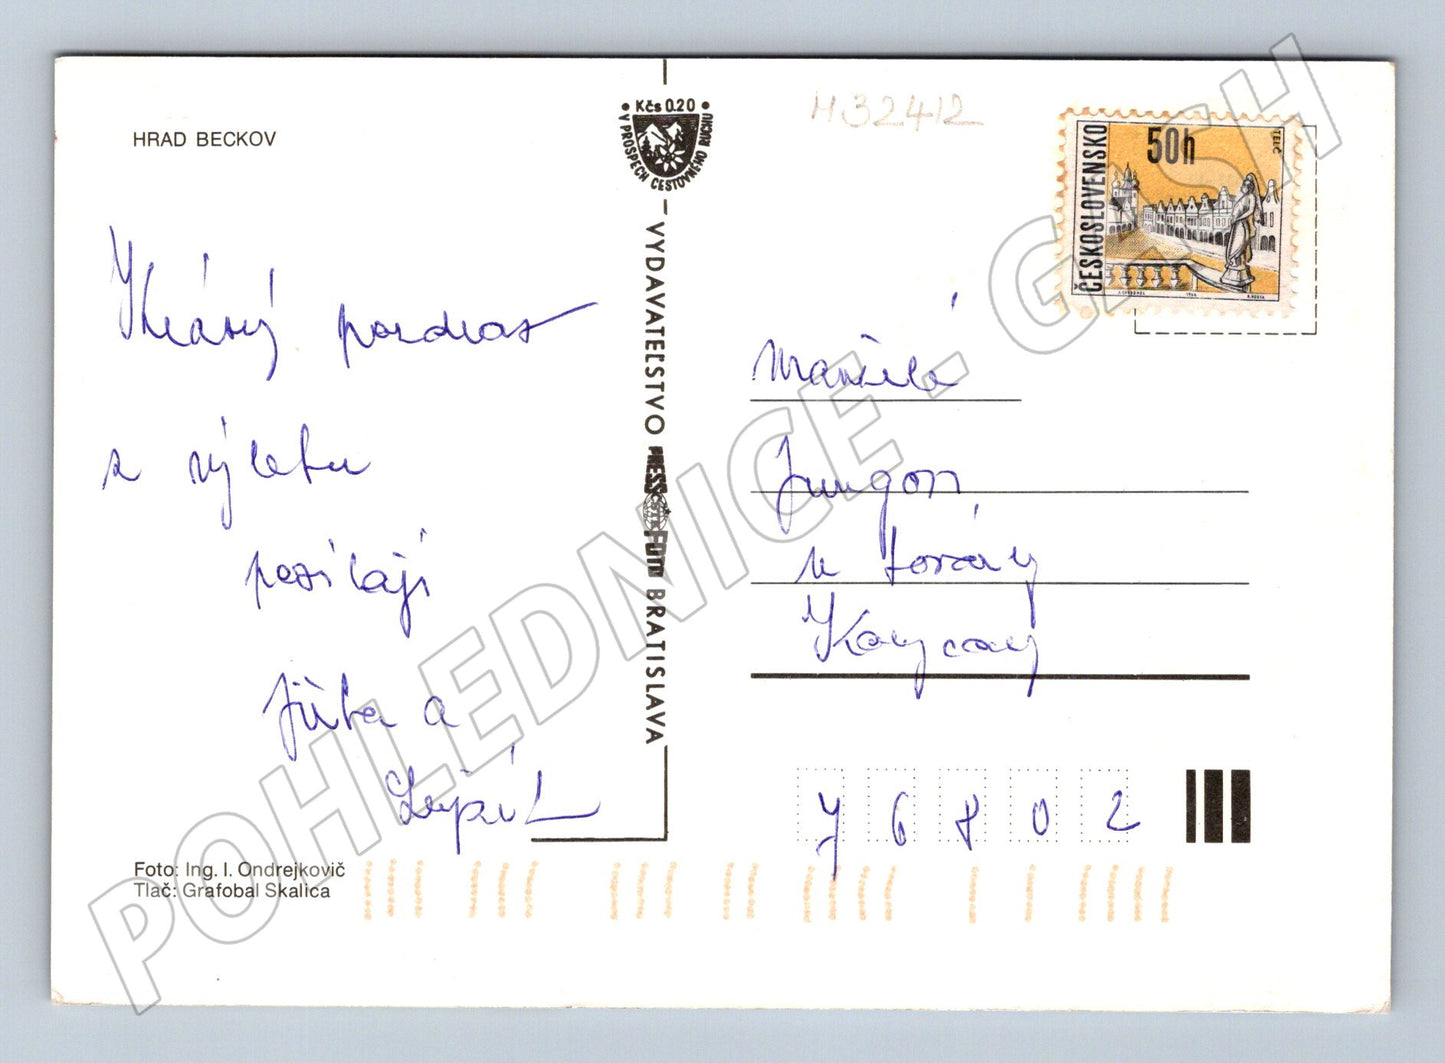 HRAD BECKOV
Kčs 0.20
V PROSPECH CESTOVNÉHO RUCHU
M32412
ČESKOSLOVENSKO
50h
TELČ
1966
Krásný pozdrav
z výletu
posílají
Jiřka a
VYDAVATEĽSTVO PRESSFOTO BRATISLAVA
ČSTK
Manželé
Jungovi
u továrny
76802
Foto: Ing. I. Ondrejkovič
Tlač: Grafobal Skalica
POHLEDNICE - GASH